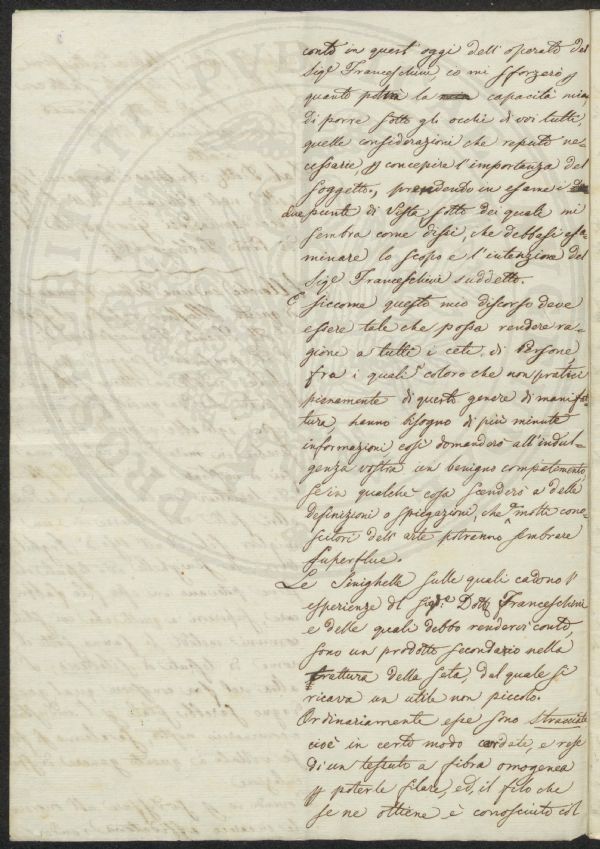 conto in quest'oggi dell'operato del
Sigr Franceschini, io mi sforzerò
quanto potrà la capacità mia,
di porre sotto gli occhi di voi tutti,
quelle considerazioni che reputo ne-
cessarie, p concepire l'importanza del
soggetto, prendendo in esame i
due punti di vista, sotto dei quali mi
sembra come dissi, che debbasi esa-
minare lo scopo e l'intenzione del
Sigr Franceschini suddetto.
E siccome questo mio discorso deve
essere tale che possa rendere ra-
gione a tutti i ceti, di Persone,
fra i quali coloro che non pratici
pienamente di questo genere di manifat-
tura, hanno bisogno di più minute
informazioni così domanderò all'indul-
genza vostra un benigno compatimento,
se in qualche cosa scenderò a delle
definizioni o spiegazioni, che a molti cono-
scitori dell'arte potranno sembrare
superflue.
Le Sinighelle sulle quali cadono l'
esperienze del Sigr Dottr Franceschini
e delle quali debbo rendervi conto,
sono un prodotto secondario nella
trattura della seta, dal quale si
ricava un utile non piccolo.
Ordinariamente esse sono stracciate
cioè in certo modo cardate, e rese
di un tessuto a fibra omogenea
p poterle filare, ed, il filo che
se ne ottiene è conosciuto col